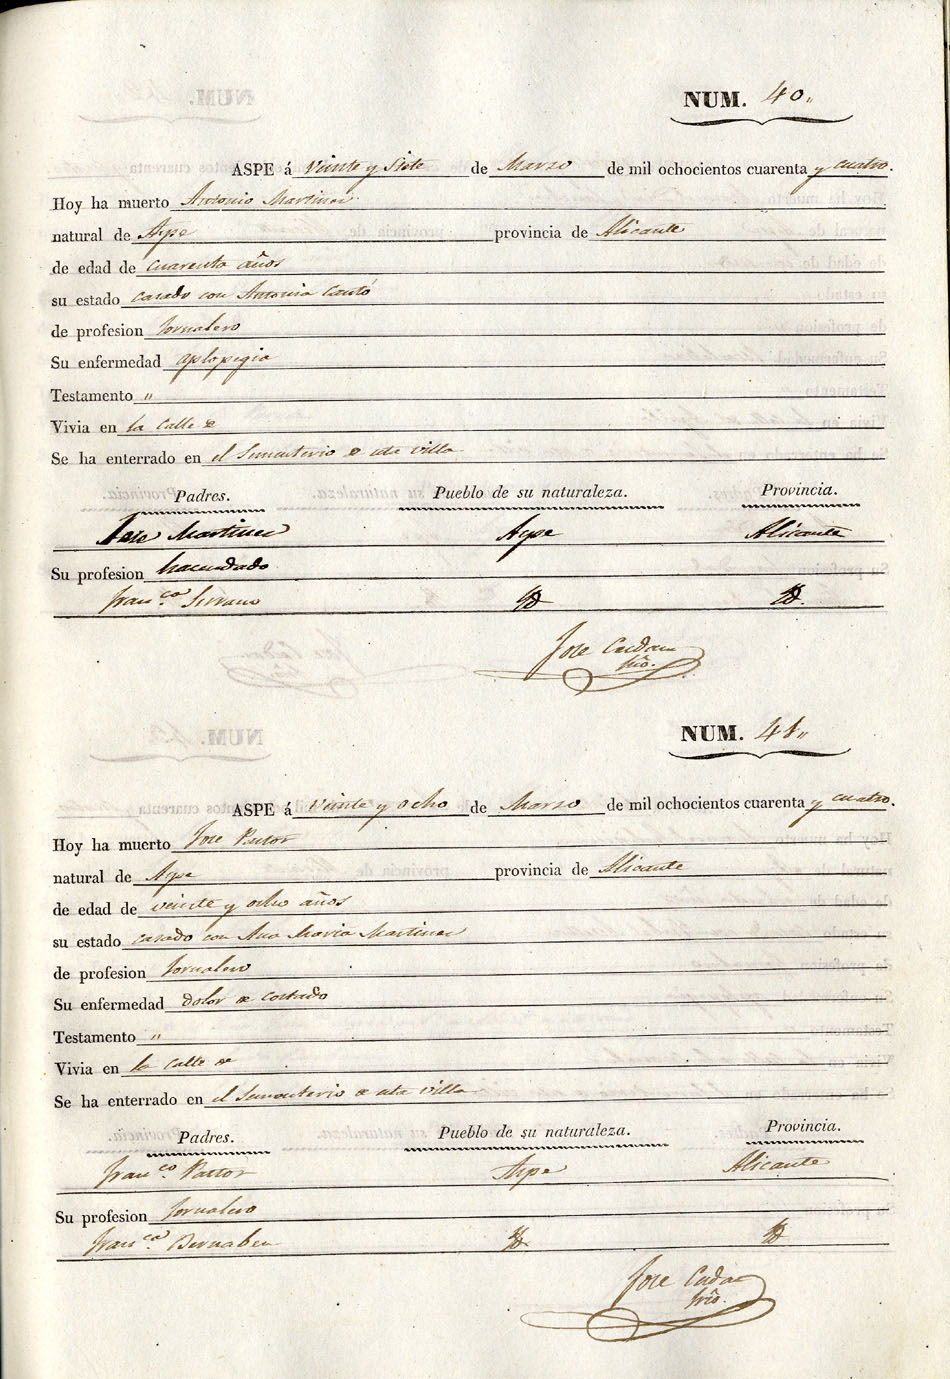 NUM. 40,,
ASPE á Veinte y Siete de Marzo de mil ochocientos cuarenta y cuatro.
Hoy ha muerto Antonio Martinez
natural de Aspe provincia de Alicante
de edad de cuarenta años
su estado casado con Antonia Cantó
de profesion Jornalero
Su enfermedad aplopegia
Testamento "
Vivia en la Calle de
Se ha enterrado en el Sementerio de esta villa
Padres. Pueblo de su naturaleza. Provincia.
Jose Martinez Aspe Alicante
Su profesion hacendado
Fran.ca Serrano Id Id.
Jose
Srio.
NUM. 41,,
ASPE á Veinte y ocho de Marzo de mil ochocientos cuarenta y cuatro.
Hoy ha muerto Jose Pastor
natural de Aspe provincia de Alicante
de edad de veinte y ocho años
su estado casado con Ana Maria Martinez
de profesion Jornalero
Su enfermedad dolor de costado
Testamento "
Vivia en la Calle de
Se ha enterrado en el Sementerio de esta villa
Padres. Pueblo de su naturaleza. Provincia.
Fran.co Pastor Aspe Alicante
Su profesion Jornalero
Fran.ca Bernabeu Id Id
Jose
Srio.